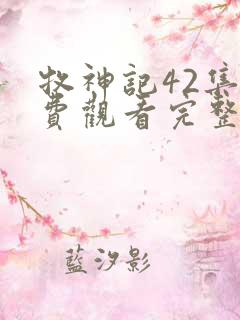 牧神記42集
費觀看完整
藍汐影